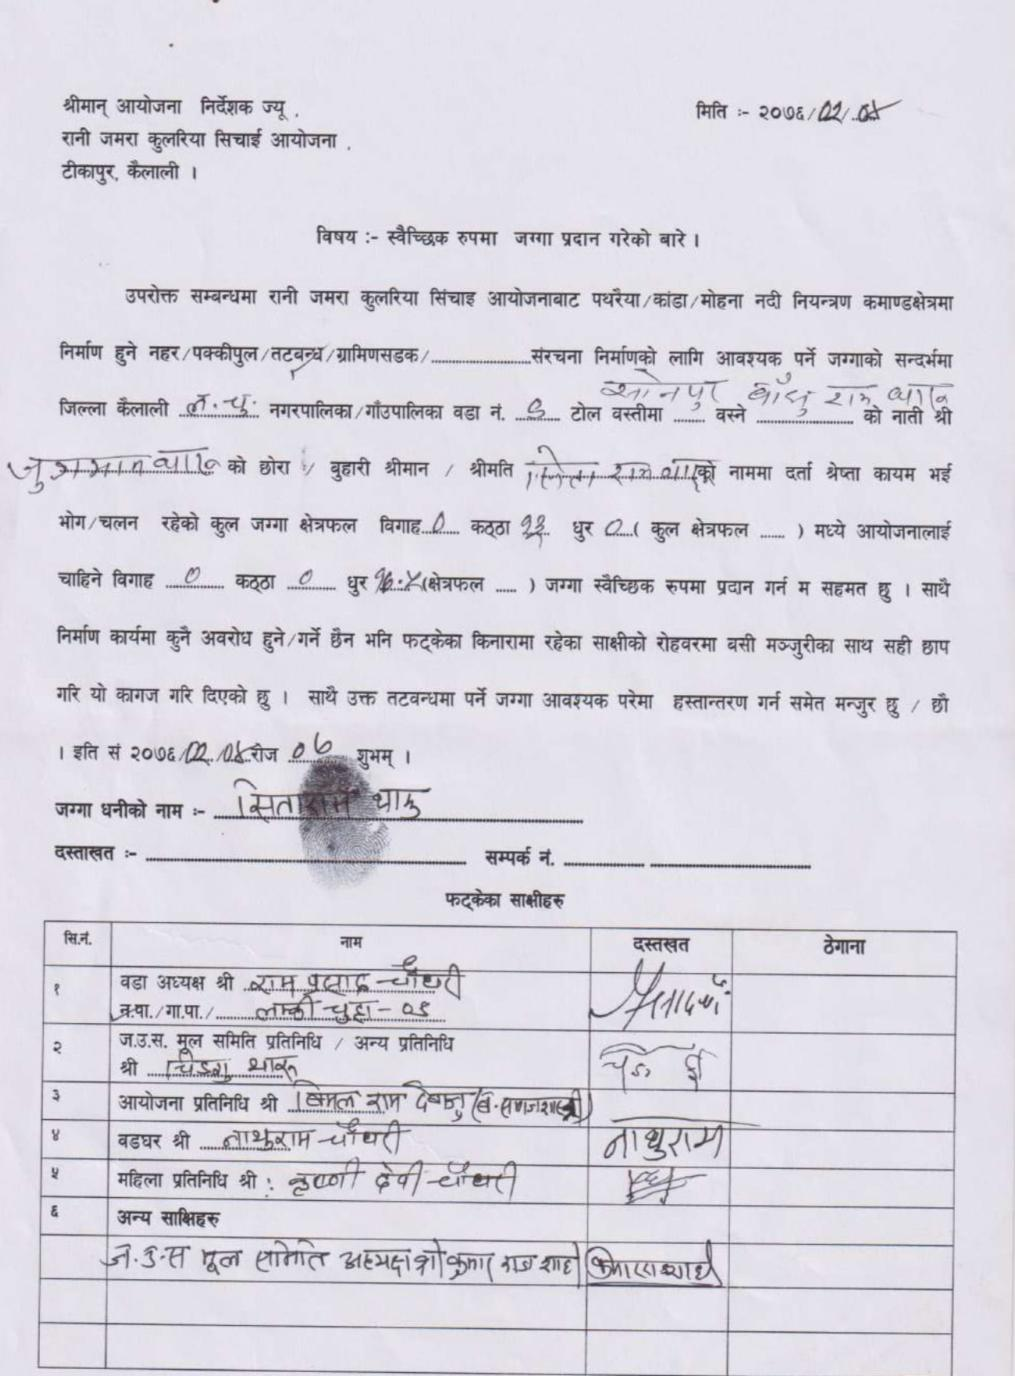 श्रीमान् आयोजना निर्देशक ज्यू ,
मिति :- २०७६/02/04
रानी जमरा कुलरिया सिचाई आयोजना ,
टीकापुर, कैलाली ।
विषय :- स्वैच्छिक रुपमा जग्गा प्रदान गरेको बारे ।
उपरोक्त सम्बन्धमा रानी जमरा कुलरिया सिंचाइ आयोजनाबाट पथरैया/कांडा/मोहना नदी नियन्त्रण कमाण्डक्षेत्रमा
निर्माण हुने नहर/पक्कीपुल/तटबन्ध/ग्रामिणसडक/..................संरचना निर्माणको लागि आवश्यक पर्ने जग्गाको सन्दर्भमा
जिल्ला कैलाली ल.चु. नगरपालिका/गाँउपालिका वडा नं. ...... टोल वस्तीमा ....... वस्ने .................. को नाती श्री
को छोरा / बुहारी श्रीमान / श्रीमति सिता राम थारु को नाममा दर्ता श्रेष्ता कायम भई
भोग/चलन रहेको कुल जग्गा क्षेत्रफल विगाह..0.. कठ्ठा ...... धुर 0...( कुल क्षेत्रफल ...... ) मध्ये आयोजनालाई
चाहिने विगाह ...0... कठ्ठा ...0... धुर १७.५(क्षेत्रफल ..... ) जग्गा स्वैच्छिक रुपमा प्रदान गर्न म सहमत छु । साथै
निर्माण कार्यमा कुनै अवरोध हुने/गर्ने छैन भनि फट्केका किनारामा रहेका साक्षीको रोहवरमा वसी मञ्जुरीका साथ सही छाप
गरि यो कागज गरि दिएको छु । साथै उक्त तटवन्धमा पर्ने जग्गा आवश्यक परेमा हस्तान्तरण गर्न समेत मन्जुर छु / छौ
। इति सं २०७६/02/04 रोज ०७ शुभम् ।
जग्गा धनीको नाम :- सिताराम थारु
दस्ताखत :- .................... सम्पर्क नं. ....................
फट्केका साक्षीहरु
सि.नं. नाम दस्तखत ठेगाना
१ वडा अध्यक्ष श्री राम प्रसाद चौधरी
न.पा./गा.पा./ लम्की चुहा - ०९
२ ज.उ.स. मूल समिति प्रतिनिधि / अन्य प्रतिनिधि
श्री चिडगु थारु
३ आयोजना प्रतिनिधि श्री
४ वडघर श्री नाथुराम चौधरी नाथुराम
५ महिला प्रतिनिधि श्री : कृष्णी देवी चौधरी
६ अन्य साक्षिहरु
ज.उ.स मूल समिति अध्यक्ष श्री कुमार राज शाही